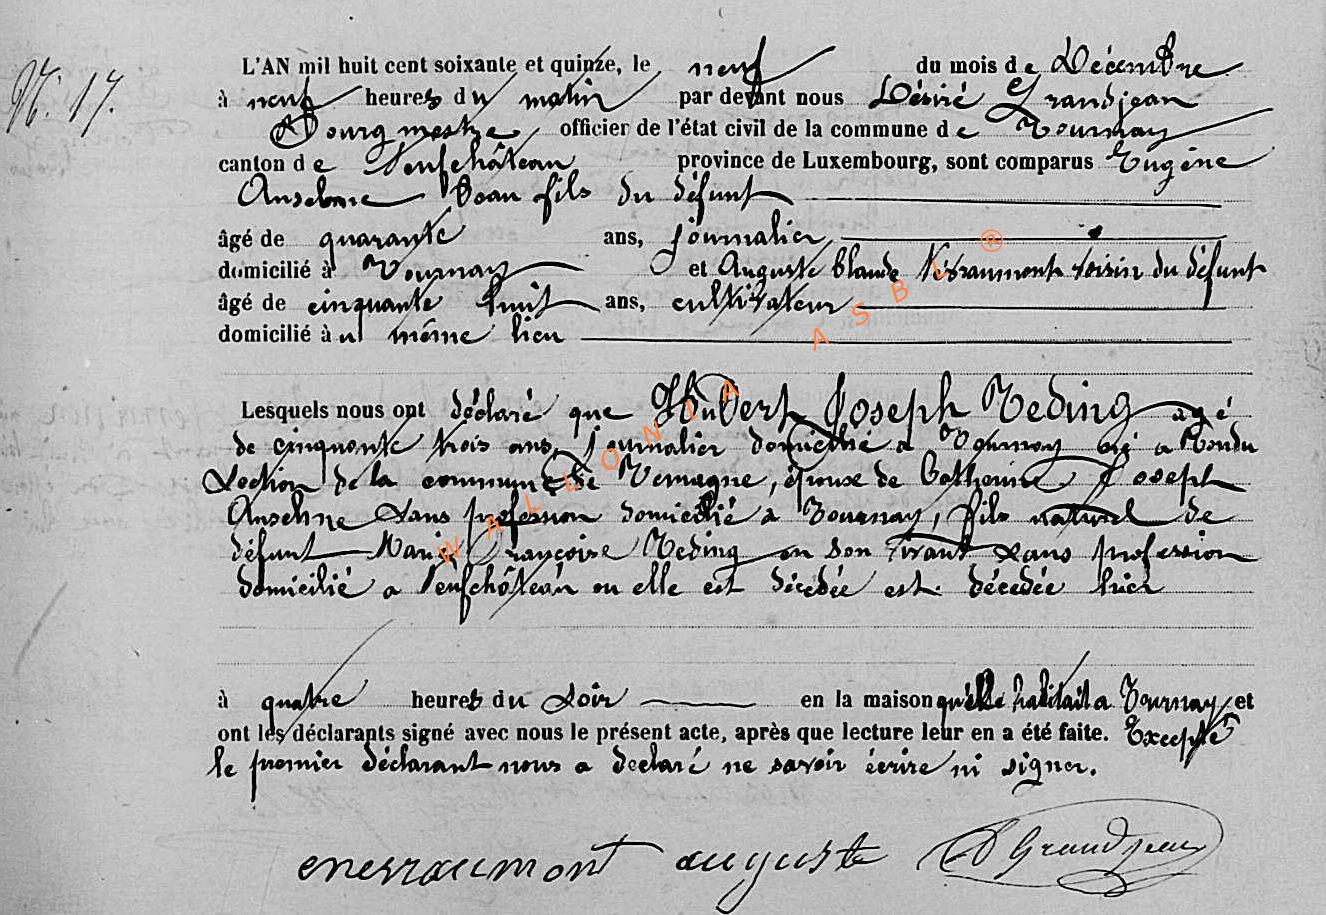 N. 17.
L'AN mil huit cent soixante et quinze, le neuf du mois de Décembre
à neuf heures du matin par devant nous Désiré Grandjean
Bourgmestre officier de l'état civil de la commune de Tournay
canton de Neufchâteau province de Luxembourg, sont comparus Eugène
Anselme beau fils du défunt
âgé de quarante ans, journalier
domicilié à Tournay et Auguste Claude Nivraumont voisin du défunt
âgé de cinquante huit ans, cultivateur
domicilié au même lieu
Lesquels nous ont déclaré que Hubert Joseph Reding agé
de cinquante trois ans, journalier domicilié a Tournay né a Rondu
Section de la commune de Remagne, époux de Catherine Joseph
Anselme sans profession domicilié a Tournay, fils naturel de
défunt Marie Françoise Reding en son vivant sans profession
domicilié a Neufchâteau ou elle est décedée est décedée hier
à quatre heures du soir en la maison qu'elle habitait a Tournay et
ont les déclarants signé avec nous le présent acte, après que lecture leur en a été faite. Excepté
le premier déclarant nous a declaré ne savoir écrire ni signer.
auguste D Grandjean
WALLONIA ASBL ®